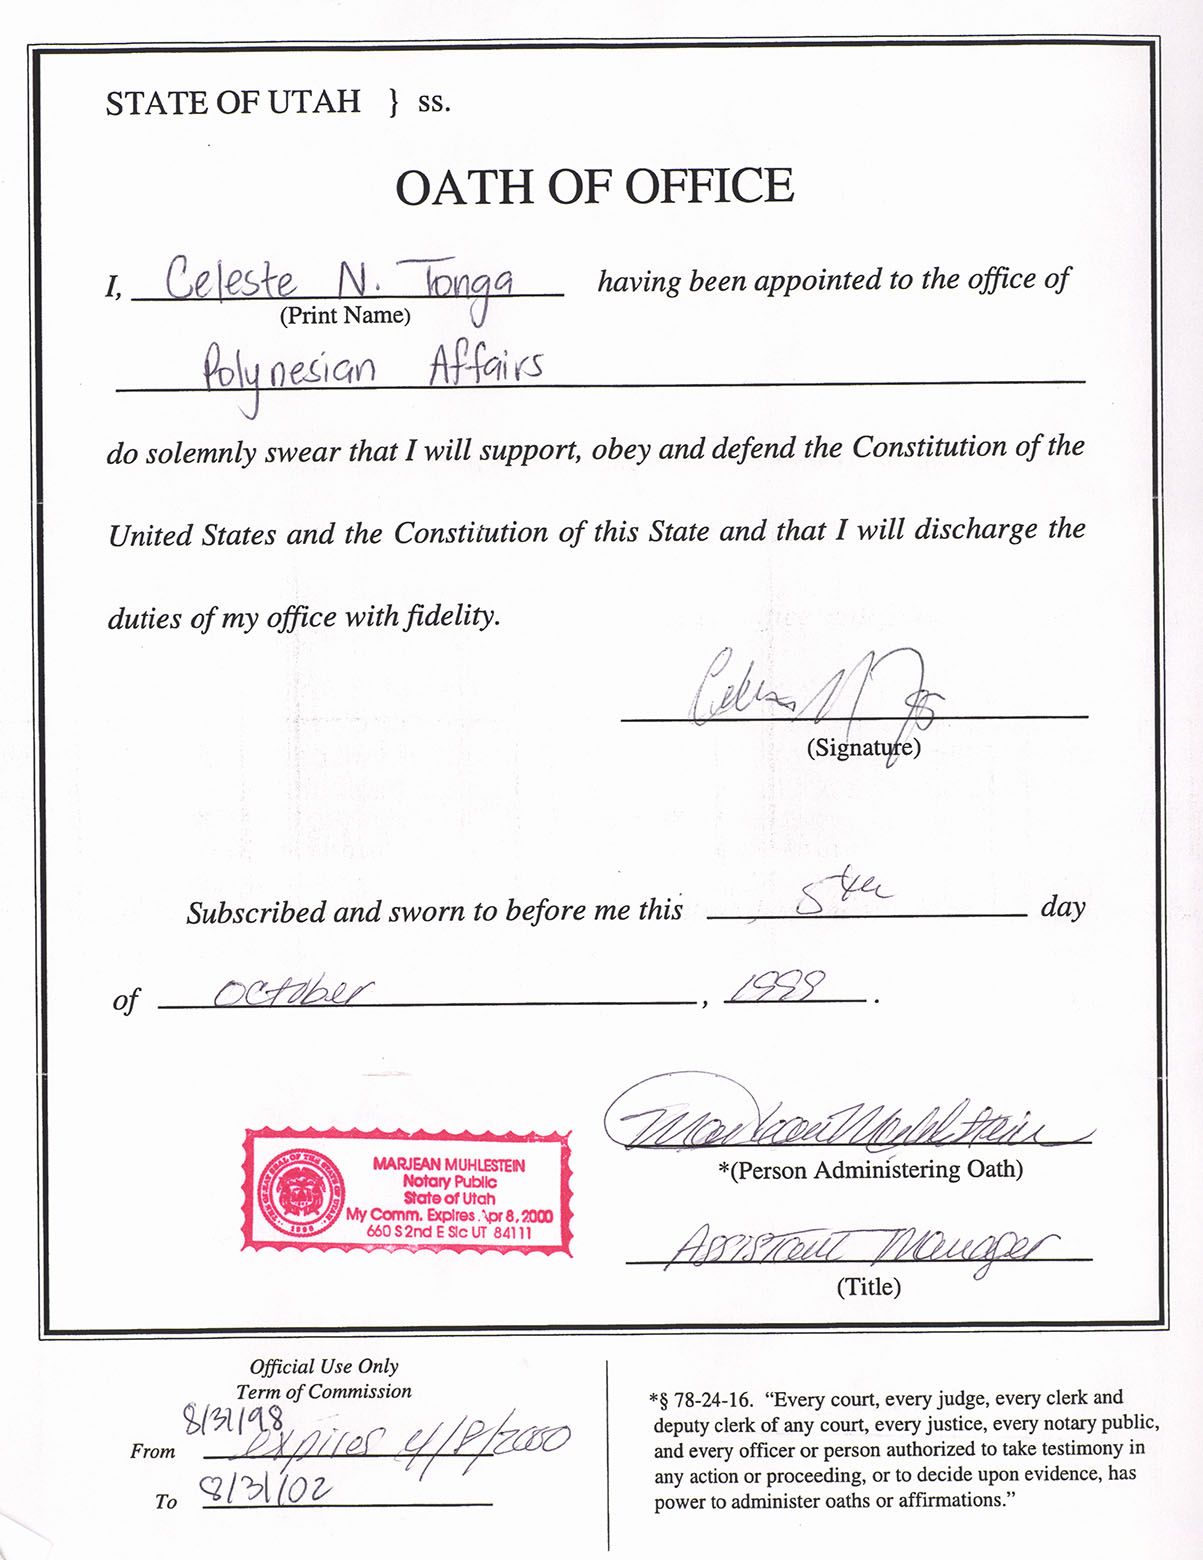 STATE OF UTAH } ss.
OATH OF OFFICE
I, Celeste N. Tonga having been appointed to the office of
(Print Name)
Polynesian Affairs
do solemnly swear that I will support, obey and defend the Constitution of the
United States and the Constitution of this State and that I will discharge the
duties of my office with fidelity.
(Signature)
Subscribed and sworn to before me this 5th day
of October, 1999.
MarJean Muhlestein
*(Person Administering Oath)
MARJEAN MUHLESTEIN
Notary Public
State of Utah
My Comm. Expires Apr 8, 2000
660 S 2nd E Slc UT 84111
THE GREAT SEAL OF THE STATE OF UTAH
1896
Assistant Manager
(Title)
Official Use Only
Term of Commission
8/31/98
From expires 4/8/2000
To 8/31/02
*§ 78-24-16. “Every court, every judge, every clerk and
deputy clerk of any court, every justice, every notary public,
and every officer or person authorized to take testimony in
any action or proceeding, or to decide upon evidence, has
power to administer oaths or affirmations.”